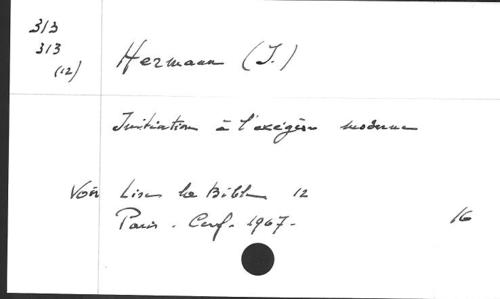 313
313
(12)
Hermann (I.)
Initiation à l'exégèse moderne
Voir Lire la Bible 12
Paris - Cerf - 1967 -
16